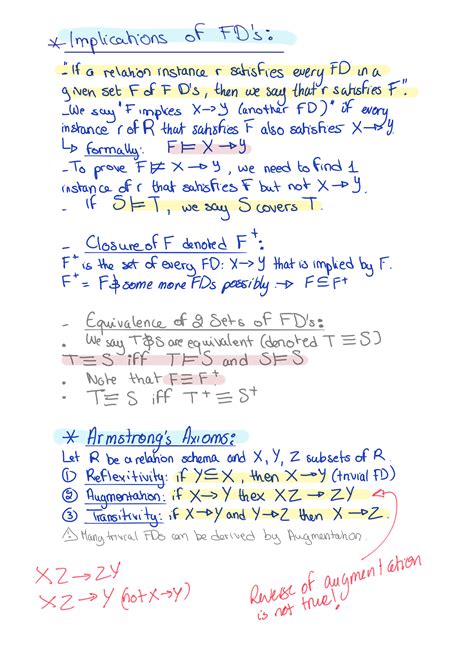 * Implications of FD's:
- "If a relation instance r satisfies every FD in a
given set F of FD's, then we say that r satisfies F".
- We say "F implies X→Y (another FD)" if every
instance r of R that satisfies F also satisfies X→Y.
↳ formally: F ⊨ X→Y
- To prove F ⊭ X→Y, we need to find 1
instance of r that satisfies F but not X→Y.
- If S ⊨ T, we say S covers T.
- Closure of F denoted F⁺:
F⁺ is the set of every FD: X→Y that is implied by F.
F⁺ = F & some more FDs possibly → F ⊆ F⁺
- Equivalence of 2 Sets of FD's:
• We say T & S are equivalent (denoted T ≡ S)
T ≡ S iff T ⊨ S and S ⊨ S
• Note that F ≡ F⁺.
• T ≡ S iff T⁺ ≡ S⁺
* Armstrong's Axioms:
Let R be a relation schema and X, Y, Z subsets of R.
① Reflexitivity: if Y ⊆ X, then X→Y (trivial FD)
② Augmentation: if X→Y then XZ → ZY
③ Transitivity: if X→Y and Y→Z then X→Z.
⚠ Many trivial FDs can be derived by Augmentation.
XZ→ZY
XZ→Y (not X→Y)
Reverse of augmentation
is not true!